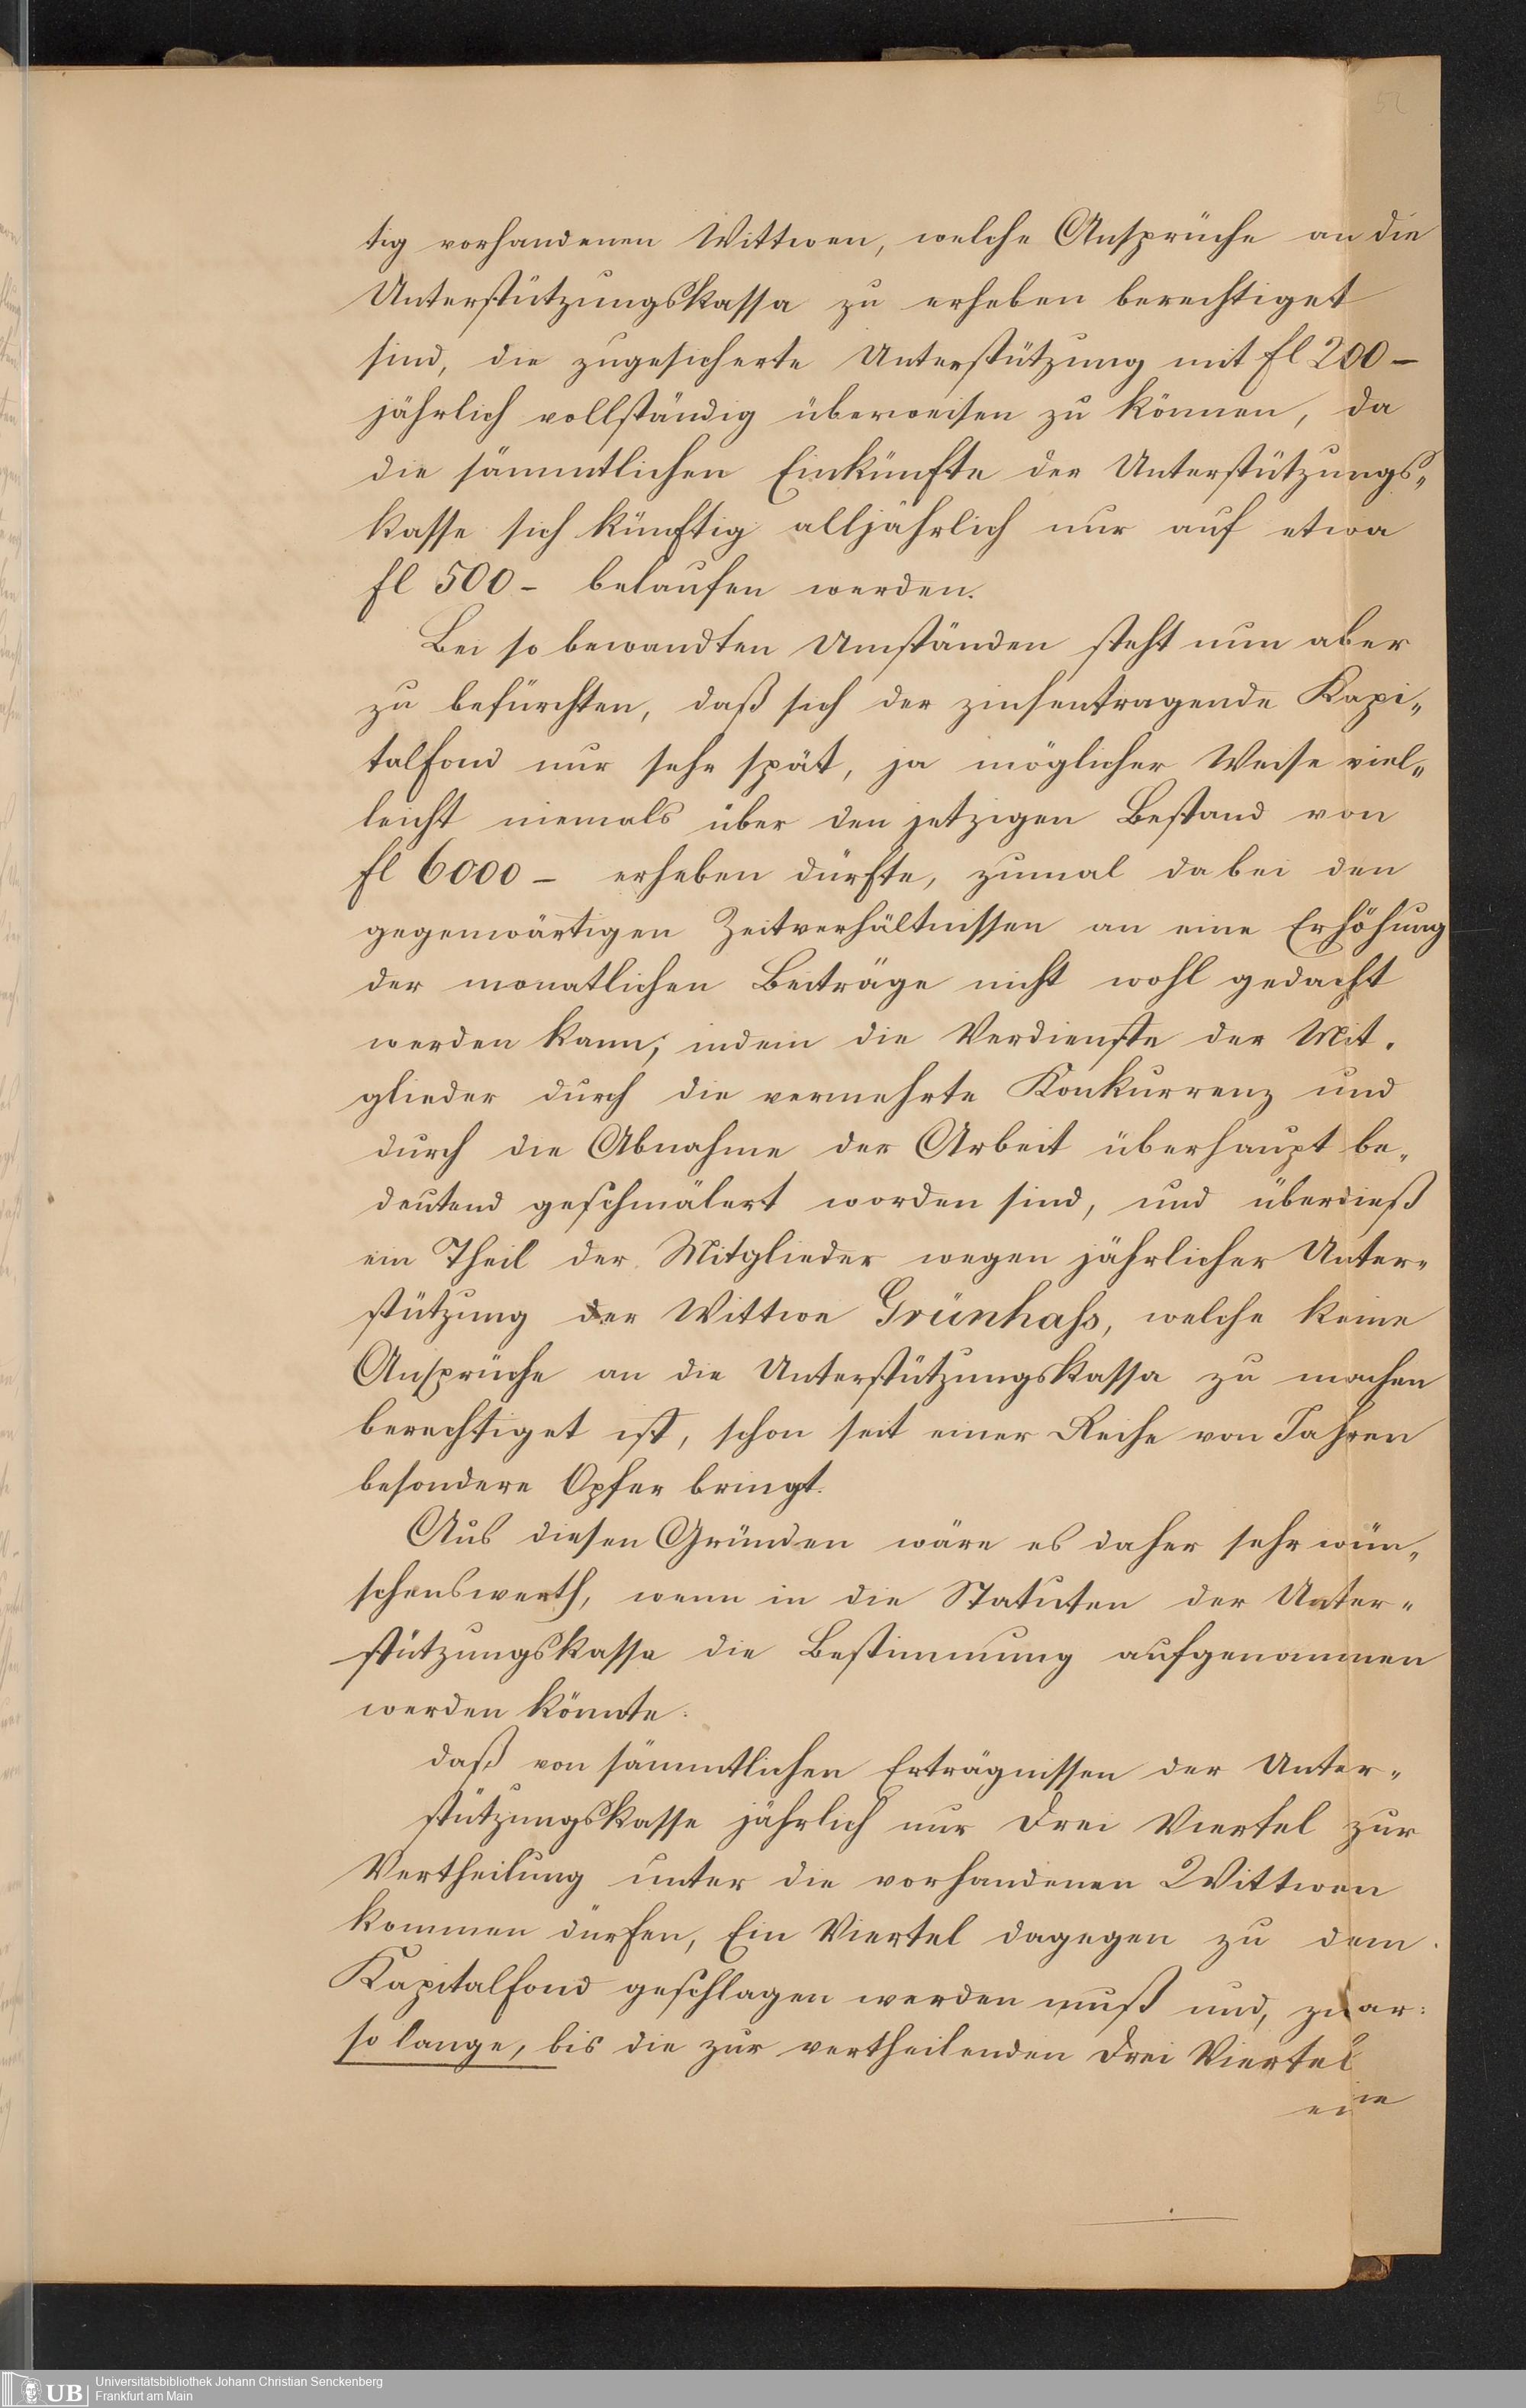 52
tig vorhandenen Wittwen, welche Ansprüche an die
Unterstützungskassa zu erheben berechtiget
sind, die zugesicherte Unterstützung mit fl 200 –
jährlich vollständig überweisen zu können, da
die sämmtlichen Einkünfte der Unterstützungs„
kasse sich künftig alljährlich nur auf etwa
fl 500 – belaufen werden.
Bei so bewandten Umständen steht nun aber
zu befürchten, daß sich der zinsentragende Kapi„
talfond nur sehr spät, ja möglicher Weise viel„
leicht niemals über den jetzigen Bestand von
fl 6000 – erheben dürfte, zumal da bei den
gegenwärtigen Zeitverhältnissen an eine Erhöhung
der monatlichen Beiträge nicht wohl gedacht
werden kann; indem die Verdienste der Mit.
glieder durch die vermehrte Konkurrenz und
durch die Abnahme der Arbeit überhaupt be„
deutend geschmälert worden sind, und überdieß
ein Theil der Mitglieder wegen jährlicher Unter„
stützung der Wittwe Grünhaß, welche keine
Ansprüche an die Unterstützungskassa zu machen
berechtiget ist, schon seit einer Reihe von Jahren
besondere Opfer bringt.
Aus diesen Gründen wäre es daher sehr wün„
schenswerth, wenn in die Statuten der Unter„
stützungskasse die Bestimmung aufgenommen
werden könnte.
daß von sämmtlichen Erträgnissen der Unter„
stützungskasse jährlich nur Drei Viertel zur
Vertheilung unter die vorhandenen Wittwen
kommen dürfen, Ein Viertel dagegen zu dem
Kapitalfond geschlagen werden muß und, zwar:
so lange, bis die zur vertheilenden Drei Viertel
eine
UB
Universitätsbibliothek Johann Christian Senckenberg
Frankfurt am Main